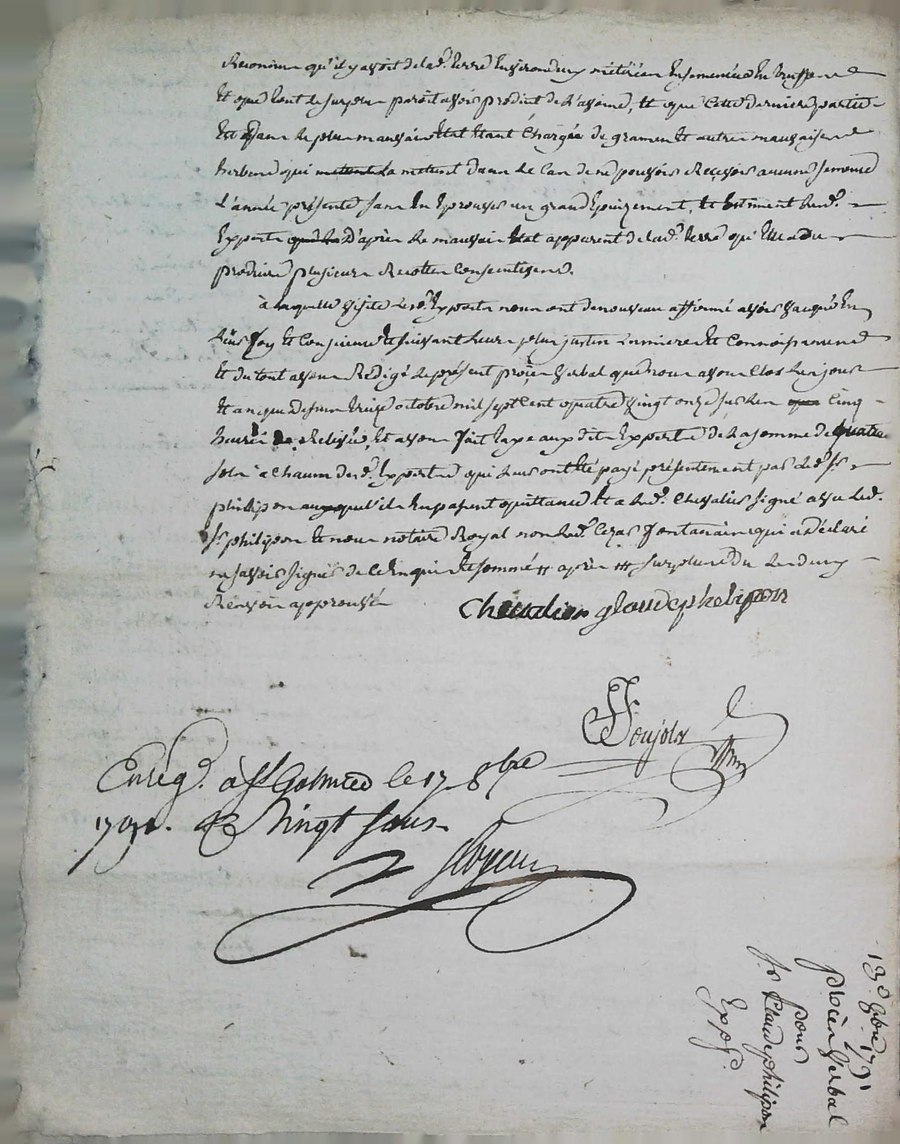 Reconnu qu'il y avoit de lad. terre Environ deux métérées Ensemencée En
Et que tout le surplus paroit avoir produit de l'avoine, Et que cette derniere partie
Est dans le plus mauvais Etat Etant Chargée de gramen Et autres mauvaises
herbes qui la mettent dans le Cas de ne pouvoir Recevoir aucune semence
L'année présente sans En Eprouver un grand Epuizement, Et Estiment lesd.
Experts d'après le mauvais Etat apparent de lad. terre qu'Elle a du
produire plusieurs Recoltes Consecutives.
à laquelle visite lesd. Experts nous ont denouveau affirmé avoir vacqué En
Leur foy Et Conscience Et suivant leurs plus justes lumieres Et Connoissances
Et du tout avons Rédigé le présent procès verbal que nous avons Clos les jour
Et an que dessus treize octobre mil sept Cent quatre vingt onze sur les cinq
heures de Relevée, Et avons fait taxe auxdits Experts de la somme de quatre
sols à Chacun desd. Experts qui leurs ont été payé présentement par led. Sr
philipon auquel ils En passent quittance Et a led. Chevalier signé avec led.
Sr philipon Et nous notaire Royal non led. Cezar fontanain qui a déclaré
ne savoir signer de ce Enquis Et sommé après surplus du
Renvoy approuvé
Chevalier glaude phelipon
Poujols
Enrég. à St Galmier le 17 8bre
1791. R Vingt sous
13e 8bre 1791
procès verbal
pour
sr Claude philipon
Exp.